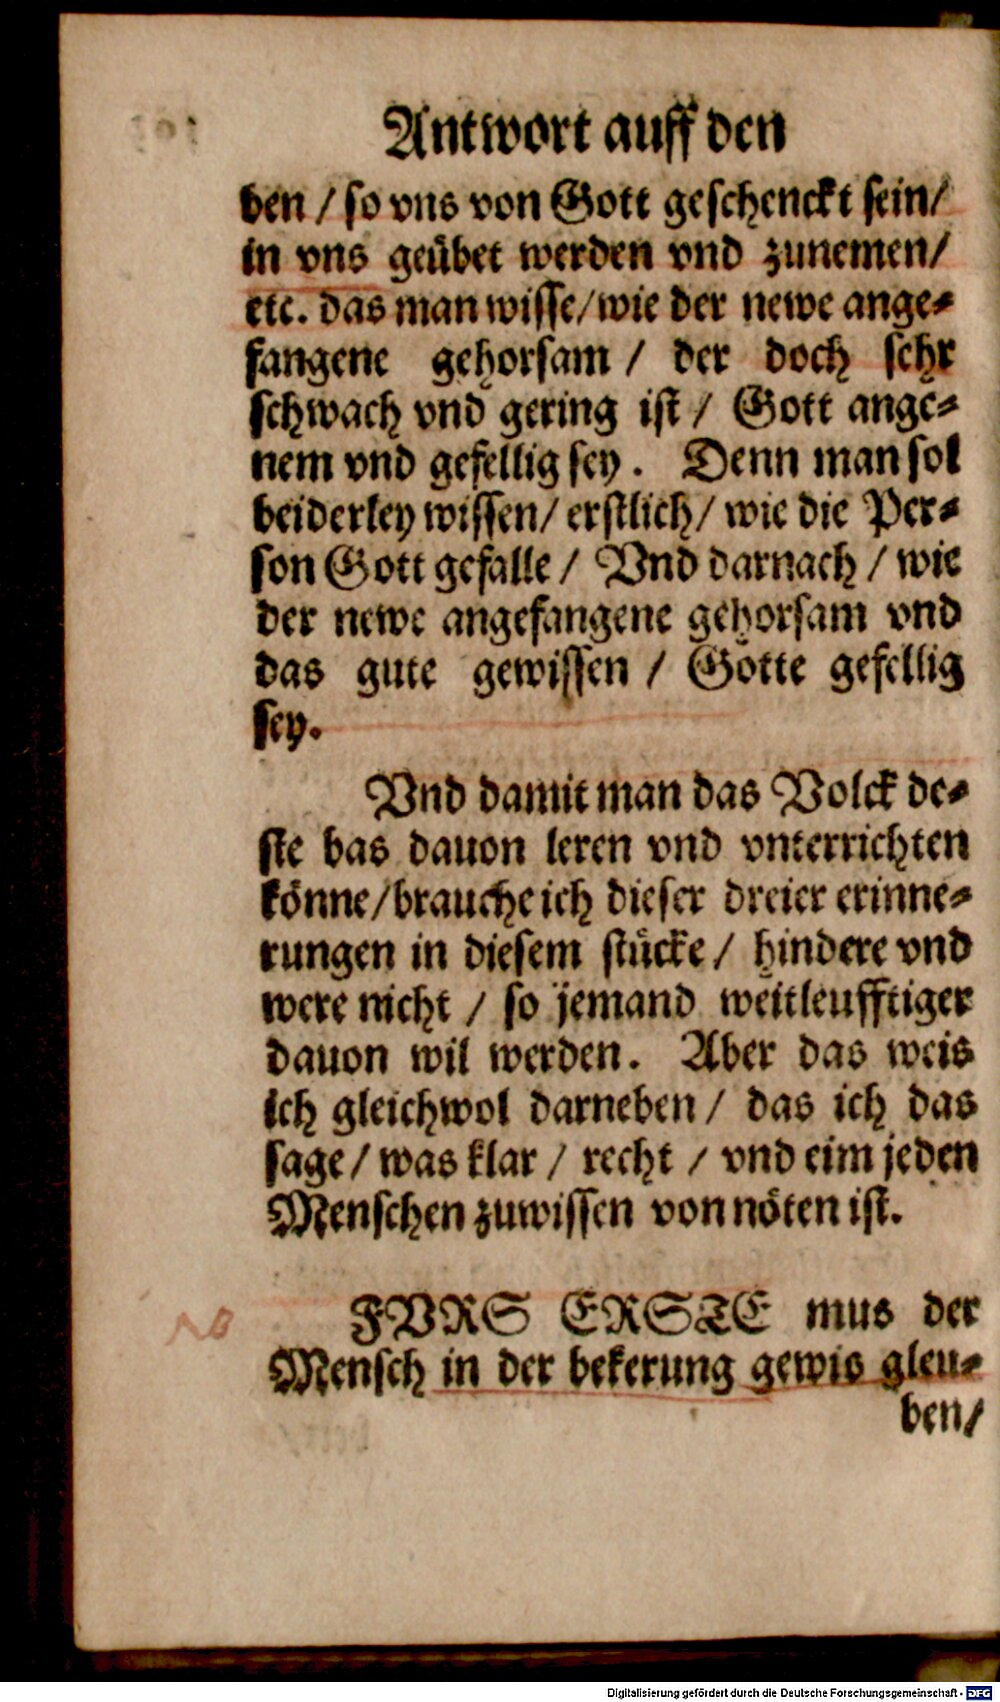 Antwort auff den
ben / so vns von Gott geschenckt sein/
in vns geübet werden vnd zunemen/
etc. das man wisse/wie der newe ange-
fangene gehorsam / der doch sehr
schwach vnd gering ist / Gott ange-
nem vnd gefellig sey. Denn man sol
beiderley wissen/ erstlich/ wie die Per-
son Gott gefalle / Vnd darnach / wie
der newe angefangene gehorsam vnd
das gute gewissen / Gotte gefellig
sey.
Vnd damit man das Volck de-
ste bas dauon leren vnd vnterrichten
könne/brauche ich dieser dreier erinne-
rungen in diesem stücke / hindere vnd
were nicht / so jemand weitleufftiger
dauon wil werden. Aber das weis
ich gleichwol darneben / das ich das
sage / was klar / recht / vnd eim jeden
Menschen zuwissen von nöten ist.
NB
FVRS ERSTE mus der
Mensch in der bekerung gewis gleu-
ben/
Digitalisierung gefördert durch die Deutsche Forschungsgemeinschaft - DFG